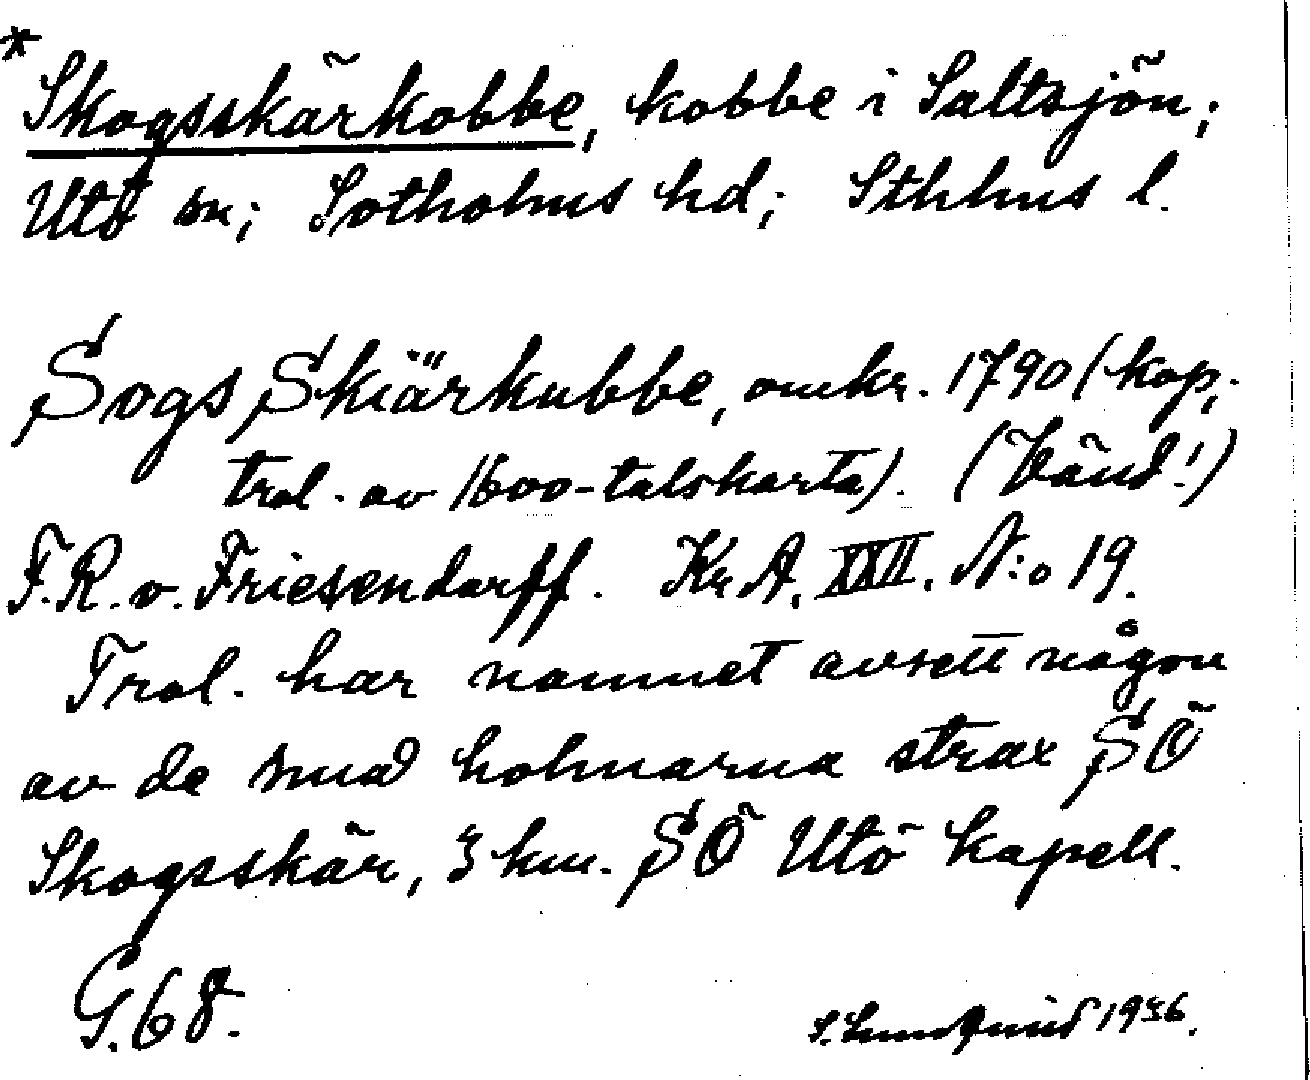 * Skogsskärkobbe, kobbe i Saltsjön;
Utö sn; Sotholms hd; Sthlms l.
Sogs Skiärkubbe, omkr. 1790 (kop,
trol. av 1600-talskarta). (Vänd!)
F.R. v. Friesendorff. Kr A. XXII. N:o 19.
Trol. har namnet avsett någon
av de små holmarna strax SÖ
Skogsskär, 3 km. SÖ Utö kapell.
G. 68.
S. Lundquist 1936.